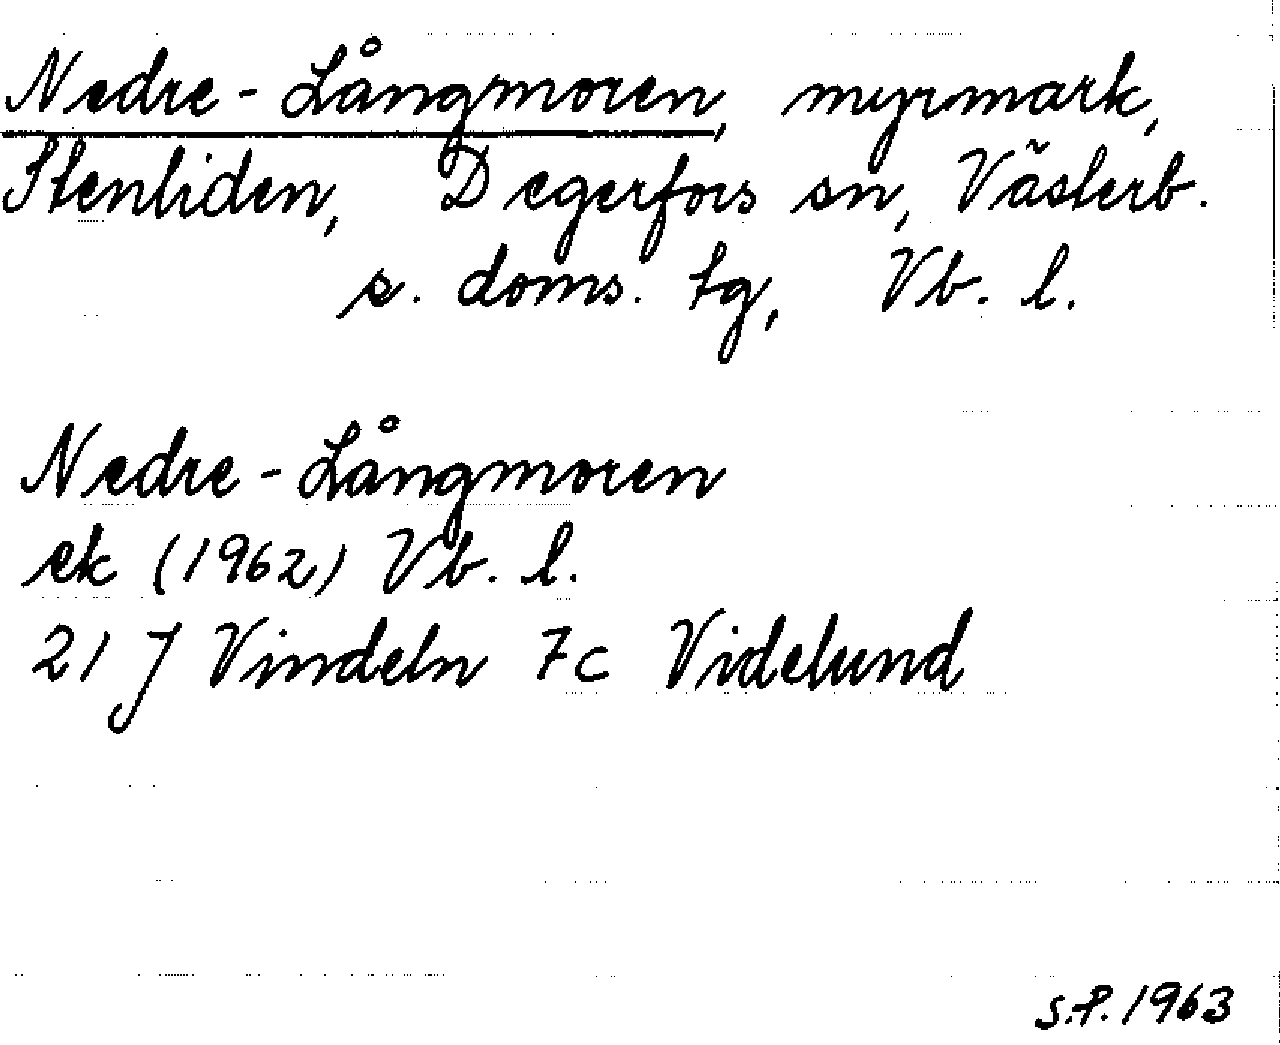 Nedre-Långmoren, myrmark,
Stenliden, Degerfors sn, Västerb.
s. doms. tg, Vb. l.
Nedre-Långmoren
ek (1962) Vb. l.
21 J Vindeln 7c Videlund
S.P. 1963